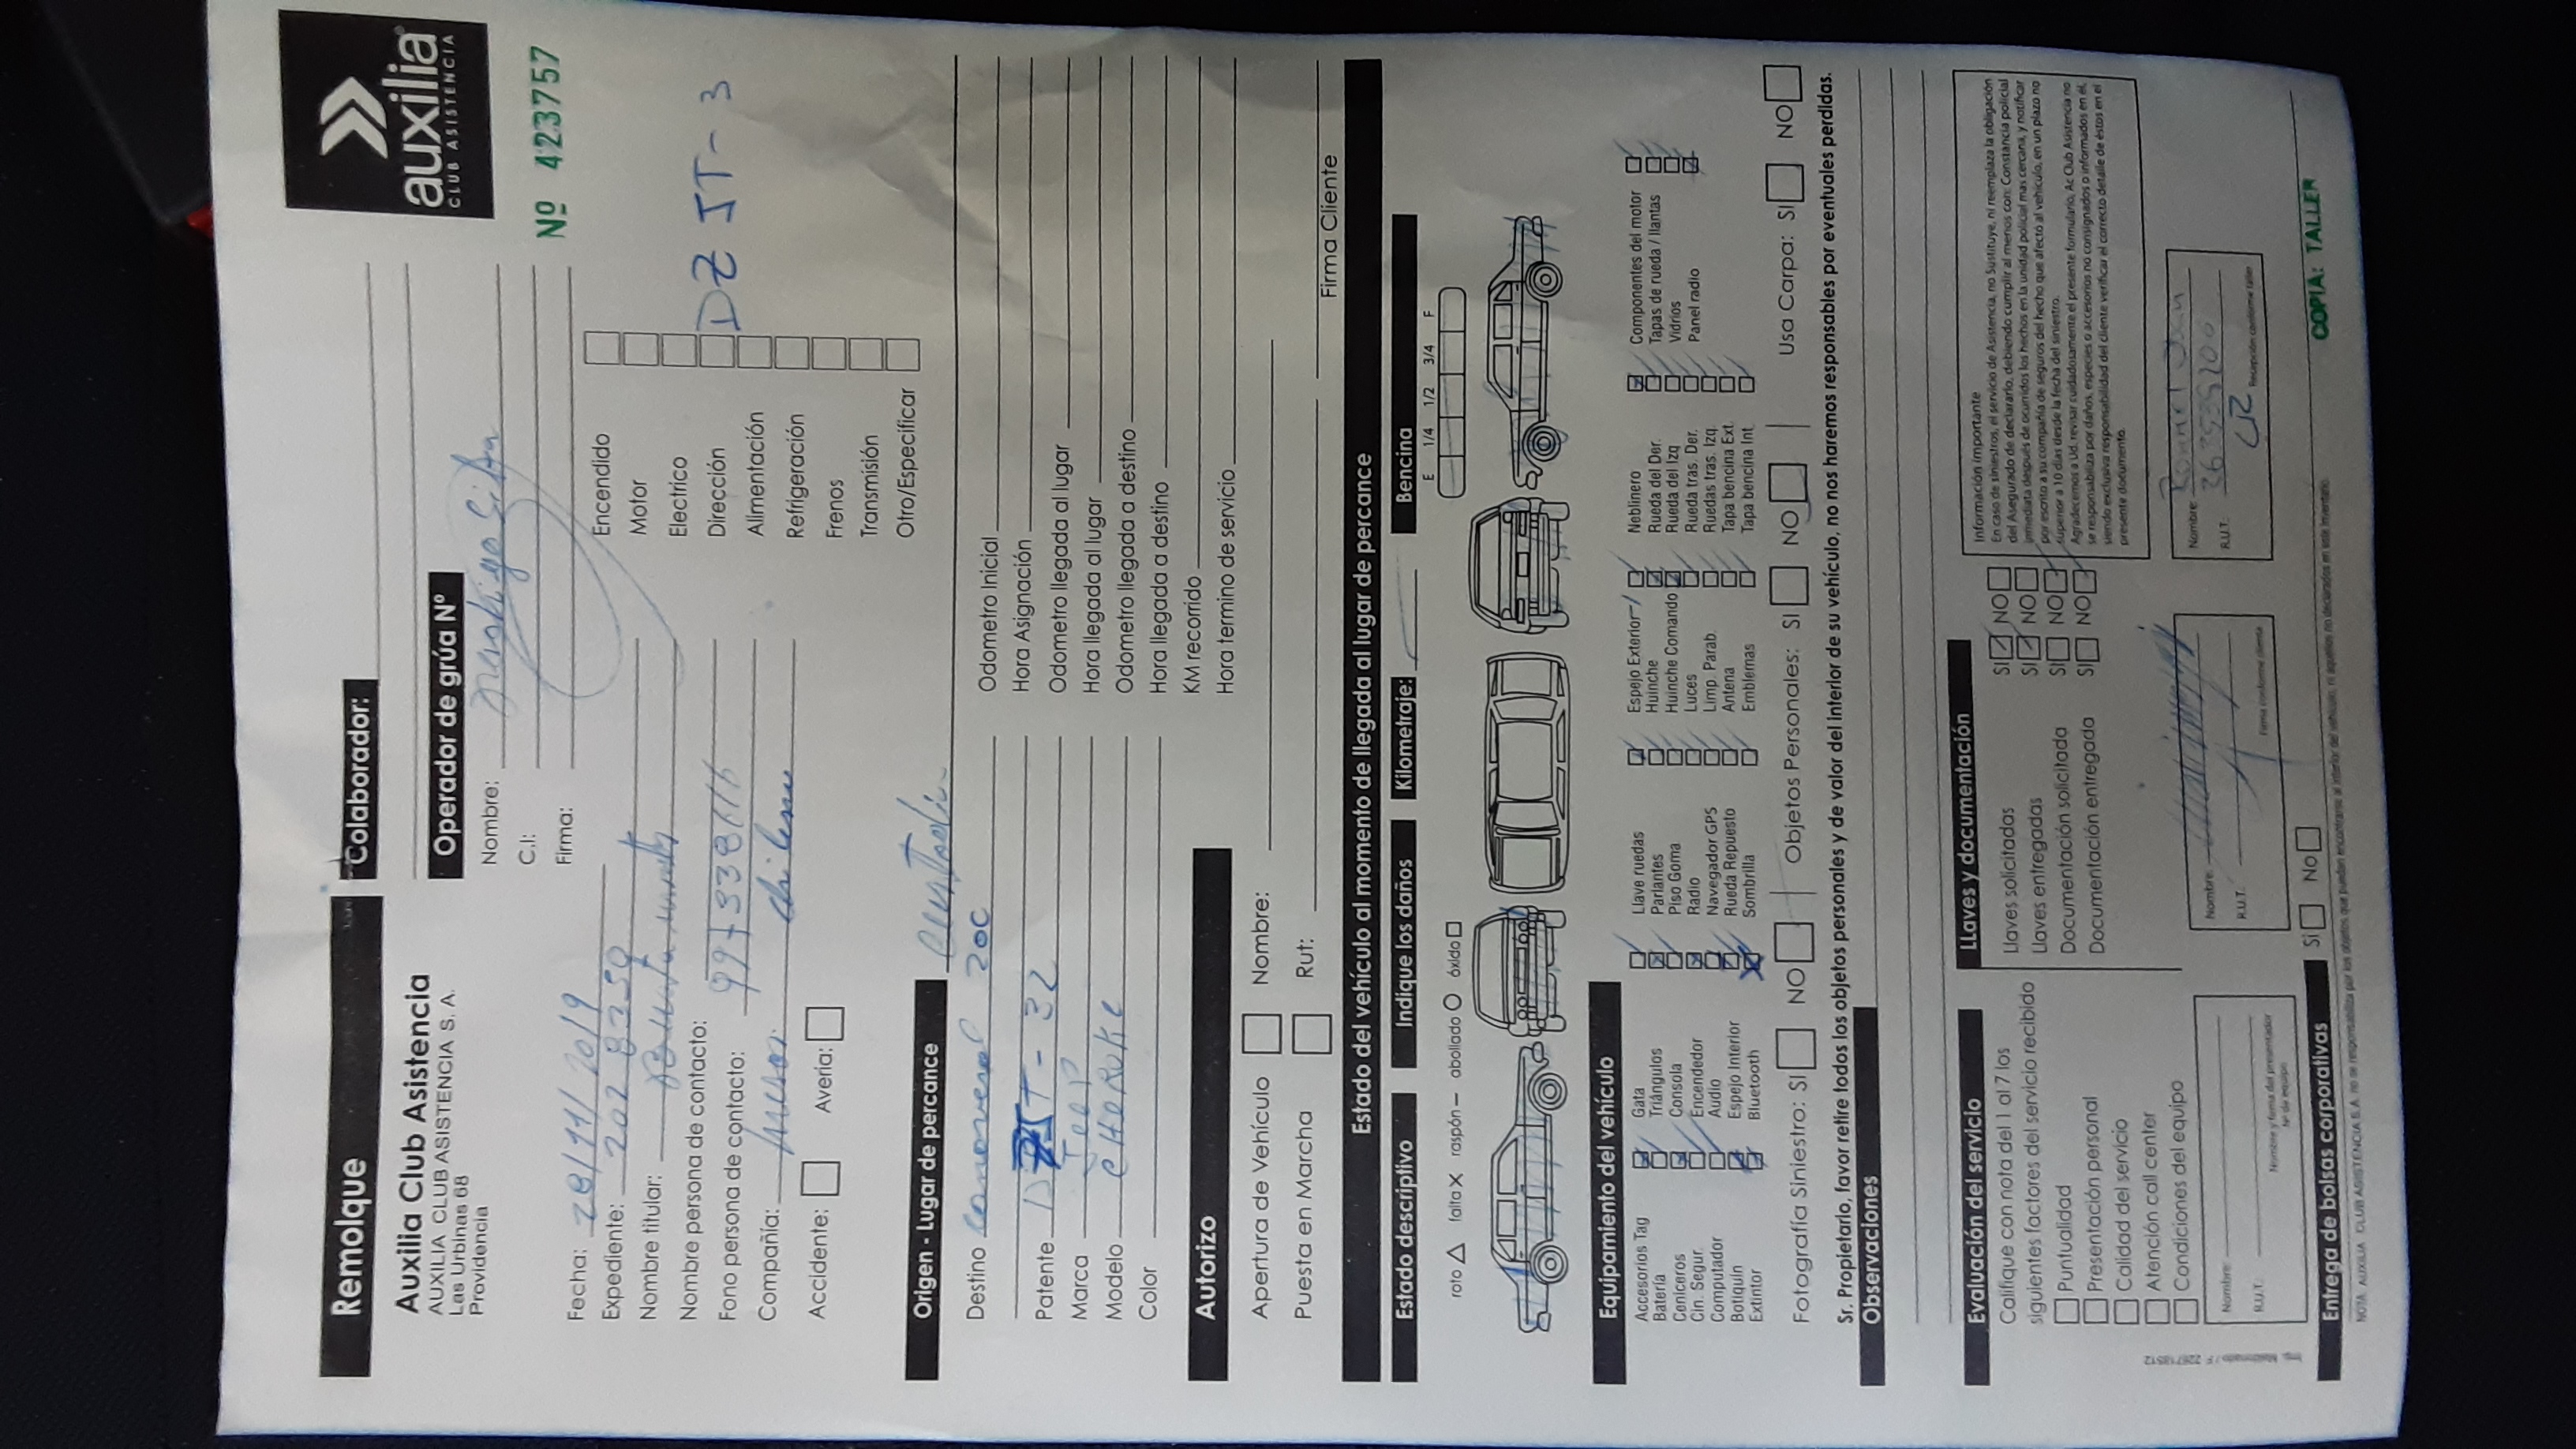 Remolque
Colaborador:
auxilia
CLUB ASISTENCIA
Auxilia Club Asistencia
AUXILIA CLUB ASISTENCIA S. A.
Las Urbinas 68
Providencia
Operador de grúa Nº
Nº 423757
Nombre:
C.I:
Firma:
Fecha: 28/11/2019
Expediente:
Nombre titular:
Nombre persona de contacto:
Fono persona de contacto:
Compañía:
Accidente: Averia:
Encendido
Motor
Electrico
Dirección
DZ JT-3
Alimentación
Refrigeración
Frenos
Transmisión
Otro/Especificar
Origen - Lugar de percance
Destino
Patente
Marca Jeep
Modelo CHeRoKe
Color
Odometro Inicial
Hora Asignación
Odometro llegada al lugar
Hora llegada al lugar
Odometro llegada a destino
Hora llegada a destino
KM recorrido
Hora termino de servicio
Autorizo
Apertura de Vehículo Nombre:
Puesta en Marcha Rut:
Firma Cliente
Estado del vehículo al momento de llegada al lugar de percance
Estado descriptivo Indique los daños Kilometraje: Bencina
roto falta X raspón – abollado O óxido
E 1/4 1/2 3/4 F
Equipamiento del vehículo
Accesorios Tag Gata Llave ruedas Espejo Exterior Neblinero Componentes del motor
Batería Triángulos Parlantes Huinche Rueda del Der. Tapas de rueda / llantas
Ceniceros Consola Piso Goma Huinche Comando Rueda del Izq Vidrios
Cin. Segur. Encendedor Radio Luces Rueda tras. Der. Panel radio
Computador Audio Navegador GPS Limp. Parab. Ruedas tras. Izq.
Botiquín Espejo Interior Rueda Repuesto Antena Tapa bencina Ext.
Extintor Bluetooth Sombrilla Emblemas Tapa bencina Int
Fotografía Siniestro: SI NO Objetos Personales: SI NO Usa Carpa: SI NO
Sr. Propietario, favor retire todos los objetos personales y de valor del interior de su vehículo, no nos haremos responsables por eventuales perdidas.
Observaciones
Evaluación del servicio
Califique con nota del 1 al 7 los
siguientes factores del servicio recibido
Puntualidad
Presentación personal
Calidad del servicio
Atención call center
Condiciones del equipo
Llaves y documentación
Llaves solicitadas SI NO
Llaves entregadas SI NO
Documentación solicitada SI NO
Documentación entregada SI NO
Información importante
En caso de siniestros, el servicio de Asistencia, no Sustituye, ni reemplaza la obligación
del Asegurado de declararlo, debiendo cumplir al menos con: Constancia policial
inmediata después de ocurridos los hechos en la unidad policial mas cercana, y notificar
por escrito a su compañía de seguros del hecho que afectó al vehículo, en un plazo no
superior a 10 días desde la fecha del siniestro.
Agradecemos a Ud. revisar cuidadosamente el presente formulario, Ac Club Asistencia no
se responsabiliza por daños, especies o accesorios no consignados o informados en él,
siendo exclusiva responsabilidad del cliente verificar el correcto detalle de éstos en el
presente documento.
Nombre:
R.U.T.:
Nombre y firma del presentador
Nº de equipo
Nombre:
R.U.T.:
Firma conforme cliente
Nombre:
R.U.T.
Recepción conforme taller
Entrega de bolsas corporativas SI No
COPIA: TALLER